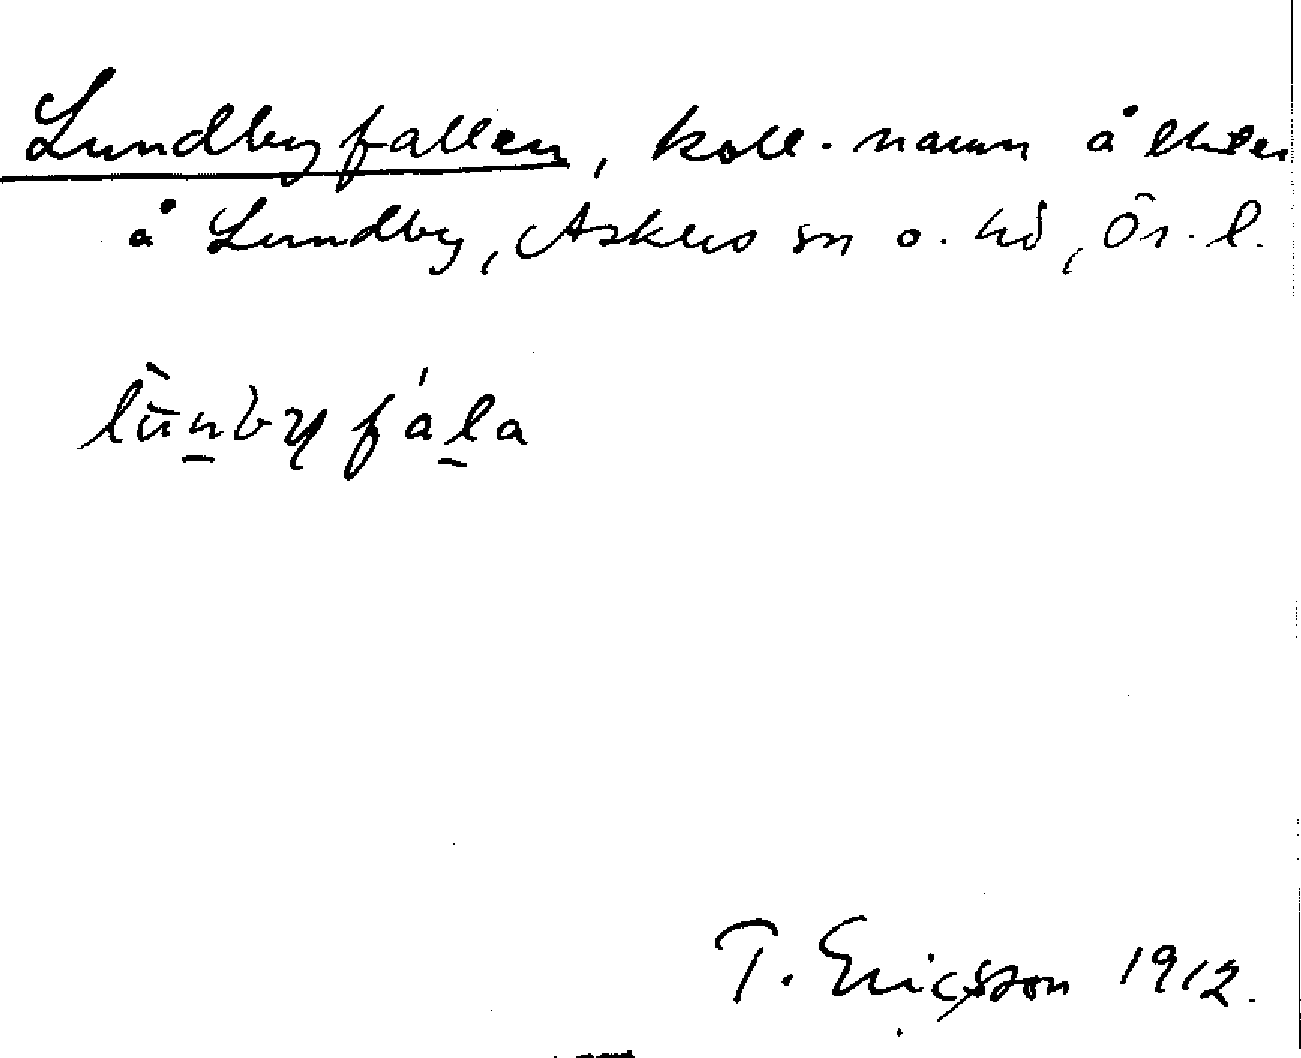 Lundbyfallen, koll-namn å
å Lundby, Askers sn o. hd, Ör. l.
lùnbyfála
T. Ericsson 1912.